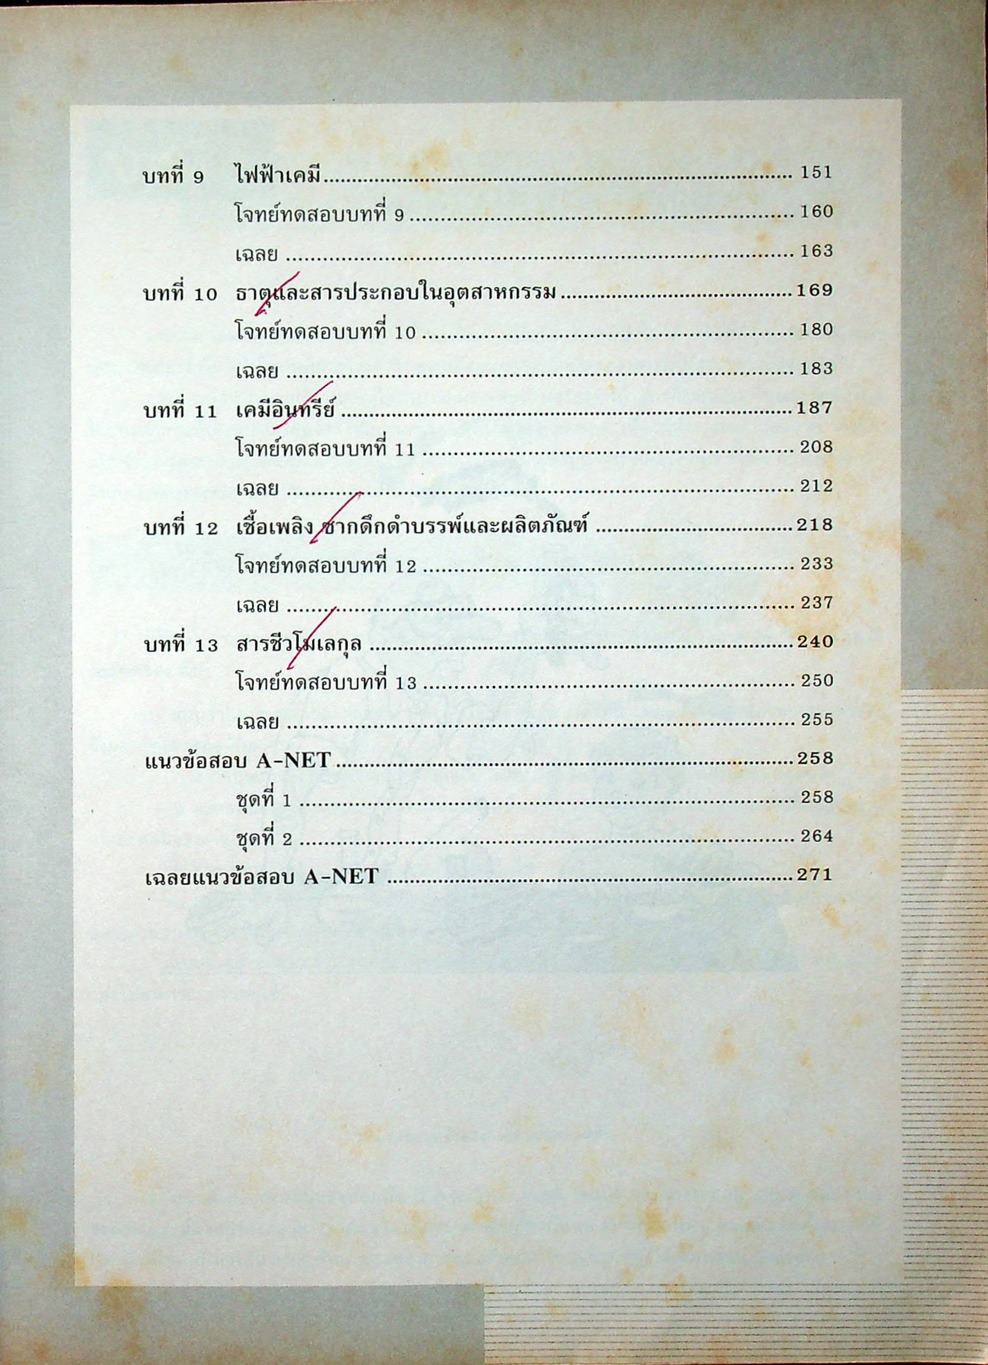 บทที่ 9 ไฟฟ้าเคมี 151
โจทย์ทดสอบบทที่ 9 160
เฉลย 163
บทที่ 10 ธาตุและสารประกอบในอุตสาหกรรม 169
โจทย์ทดสอบบทที่ 10 180
เฉลย 183
บทที่ 11 เคมีอินทรีย์ 187
โจทย์ทดสอบบทที่ 11 208
เฉลย 212
บทที่ 12 เชื้อเพลิง ซากดึกดำบรรพ์และผลิตภัณฑ์ 218
โจทย์ทดสอบบทที่ 12 233
เฉลย 237
บทที่ 13 สารชีวโมเลกุล 240
โจทย์ทดสอบบทที่ 13 250
เฉลย 255
แนวข้อสอบ A-NET 258
ชุดที่ 1 258
ชุดที่ 2 264
เฉลยแนวข้อสอบ A-NET 271